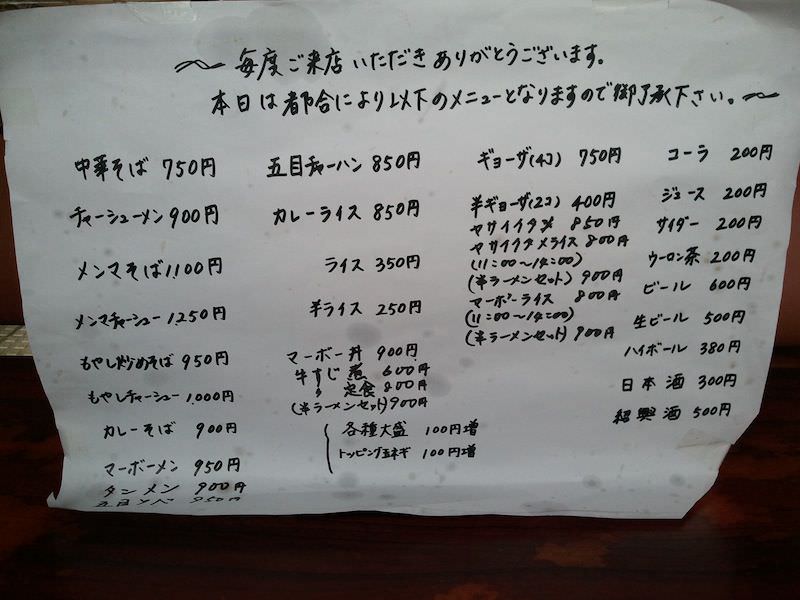 毎度ご来店いただきありがとうございます。
本日は都合により以下のメニューとなりますので御了承下さい。
中華そば 750円
チャーシューメン 900円
メンマそば 1100円
メンマチャーシュー 1,250円
もやし炒めそば 950円
もやしチャーシュー 1,000円
カレーそば 900円
マーボーメン 950円
タンメン 900円
五目メン 950円
五目チャーハン 850円
カレーライス 850円
ライス 350円
半ライス 250円
マーボー丼 900円
牛すじ煮 600円
〃 定食 800円
(半ラーメンセット) 900円
各種大盛 100円増
トッピング玉ネギ 100円増
ギョーザ(4コ) 750円
半ギョーザ(2コ) 400円
ヤサイイタメ 850円
ヤサイイタメライス 800円
(11:00〜14:00)
(半ラーメンセット) 900円
マーボーライス 800円
(11:00〜14:00)
(半ラーメンセット) 900円
コーラ 200円
ジュース 200円
サイダー 200円
ウーロン茶 200円
ビール 600円
生ビール 500円
ハイボール 380円
日本酒 300円
紹興酒 500円